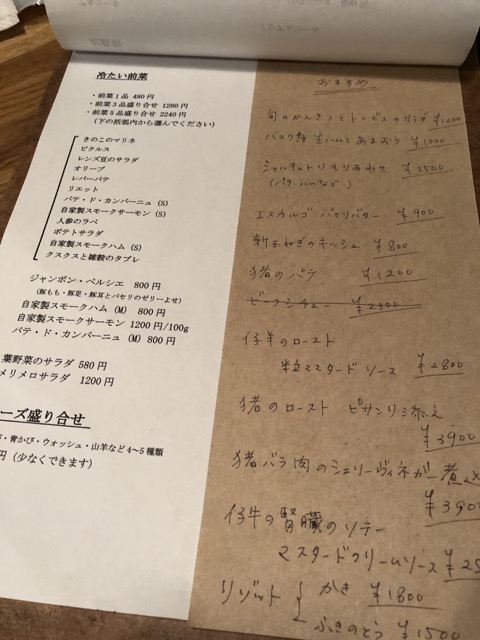 冷たい前菜
・前菜1品 480円
・前菜3品盛り合せ 1280円
・前菜5品盛り合せ 2240円
(下の括弧内から選んでください)
きのこのマリネ
ピクルス
レンズ豆のサラダ
オリーブ
レバーパテ
リエット
パテ・ド・カンパーニュ (S)
自家製スモークサーモン (S)
人参のラペ
ポテトサラダ
自家製スモークハム (S)
クスクスと雑穀のタブレ
ジャンボン・ペルシエ 800円
(豚もも・豚足・豚耳とパセリのゼリーよせ)
自家製スモークハム (M) 800円
自家製スモークサーモン 1200円/100g
パテ・ド・カンパーニュ (M) 800円
葉野菜のサラダ 580円
メリメロサラダ 1200円
ーズ盛り合せ
・青かび・ウォッシュ・山羊など4~5種類
円 (少なくできます)
おすすめ
旬のかんきつとトレビスのサラダ ¥1200
バスク豚 生ハムとあまおう ¥1000
シャルキュトリもりあわせ ¥2500
(パテ、ハムなど)
エスカルゴ パセリバター ¥900
新玉ねぎのキッシュ ¥800
猪のパテ ¥1200
ビーフシチュー ¥2300
仔羊のロースト
粒マスタードソース ¥2800
猪のロースト ピサンリ添え
¥3900
猪バラ肉のシェリーヴィネガー煮込
¥390
仔牛の腎臓のソテー
マスタードクリームソース ¥25
リゾット { かき ¥1800
ふきのとう ¥1500